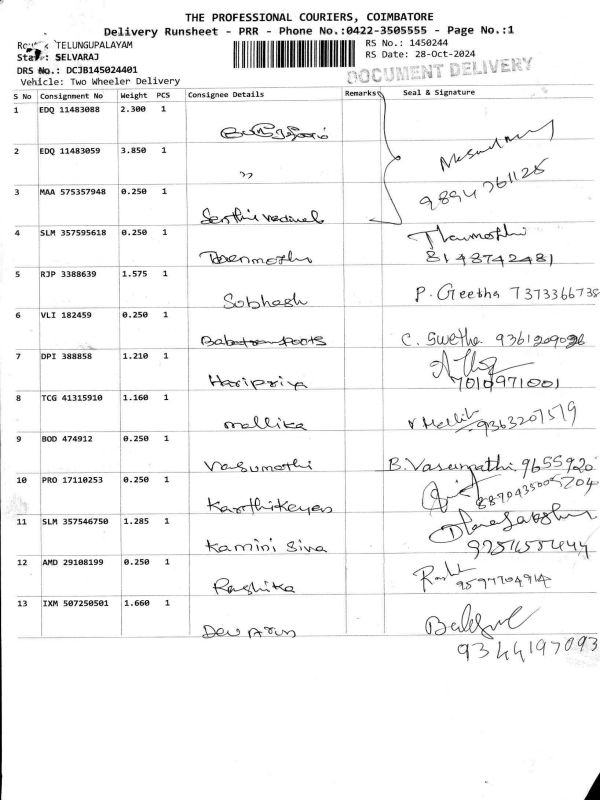 THE PROFESSIONAL COURIERS, COIMBATORE
Delivery Runsheet - PRR - Phone No.:0422-3505555 - Page No.:1
TELUNGUPALAYAM
RS No.: 1450244
SELVARAJ
RS Date: 28-Oct-2024
DRS No.: DCJB145024401
DOCUMENT DELIVERY
Vehicle: Two Wheeler Delivery
S No Consignment No Weight PCS Consignee Details Remarks Seal & Signature
1 EDQ 11483088 2.300 1
2 EDQ 11483059 3.850 1 "
9894761125
3 MAA 575357948 0.250 1
4 SLM 357595618 0.250 1
8148742481
5 RJP 3388639 1.575 1 Subhash P. Geetha 7373366738
6 VLI 182459 0.250 1 C. Swetha
7 DPI 388858 1.210 1 Haripriya
7010971001
8 TCG 41315910 1.160 1 Mallika 9363207579
9 BOD 474912 0.250 1 Vasumathi B. Vasumathi 9655920
10 PRO 17110253 0.250 1 Karthikeyan 5204
11 SLM 357546750 1.285 1 Kamini Siva
12 AMD 29108199 0.250 1 Rashika
13 IXM 507250501 1.660 1 Dev Arun
9344197093